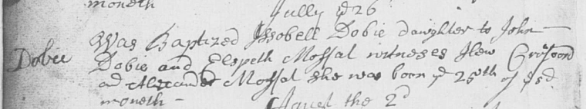 moneth
Jully ye 26
Dobie Was Baptized Issobell Dobie daughter to John
Dobie and Elspeth Moffat witnesses
and Alexander Moffat she was born ye 25th of sd
moneth
the 2d